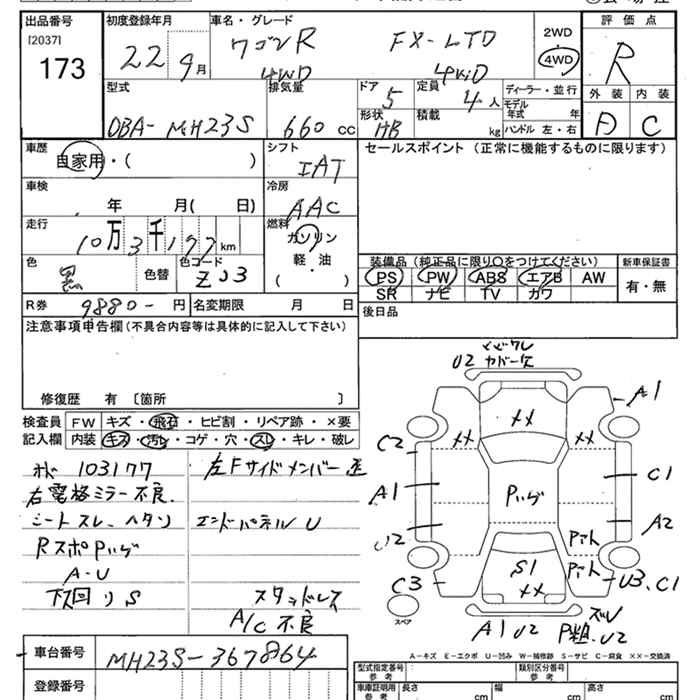 出品番号
[2037]
173
初度登録年月
22 9月
車名・グレード
ワゴンR FX-LTD
4WD 4WD
2WD
4WD
評価点
R
外装 内装
A C
型式
DBA-MH23S
排気量
660 cc
ドア
5
定員
4人
形状
HB
積載
kg
ディーラー・並行
モデル年式 年
ハンドル 左・右
車歴
自家用・( )
シフト
IAT
セールスポイント (正常に機能するものに限ります)
車検
年 月( 日)
冷房
AAC
走行
10万3千177km
燃料
ガソリン
軽・油
( )
色
黒
色替
色コード
ZJ3
装備品 (純正品に限り○をつけてください)
新車保証書
PS PW ABS エアB AW
SR ナビ TV カワ
有・無
R券 9880- 円
名変期限 月 日
後日品
注意事項申告欄(不具合内容等は具体的に記入して下さい)
修復歴 有 〔箇所 〕
検査員
記入欄
FW キズ・飛石・ヒビ割・リペア跡・×要
内装 キズ・汚レ・コゲ・穴・スレ・キレ・破レ
103177
左Fサイドメンバー
右電格ミラー不良.
シートスレ、ヘタリ
エンドパネルU
RスポPハゲ
A-U
下回りS
スタッドレス
A/C不良
U2 カバー欠
A1
××
×× ××
C2
C1
A1
Pハゲ
A2
U2
Pアト
C3
S1
××
Pアト
U3.C1
スペア
A1 U2
P粗.U2
A-キズ E-エクボ U-凹み W-補修跡 S-サビ C-腐食 ××-交換済
車台番号
MH23S-367864
登録番号
型式指定番号
参考
類別区分番号
参考
車庫証明用
参考
長さ cm
幅 cm
高さ cm